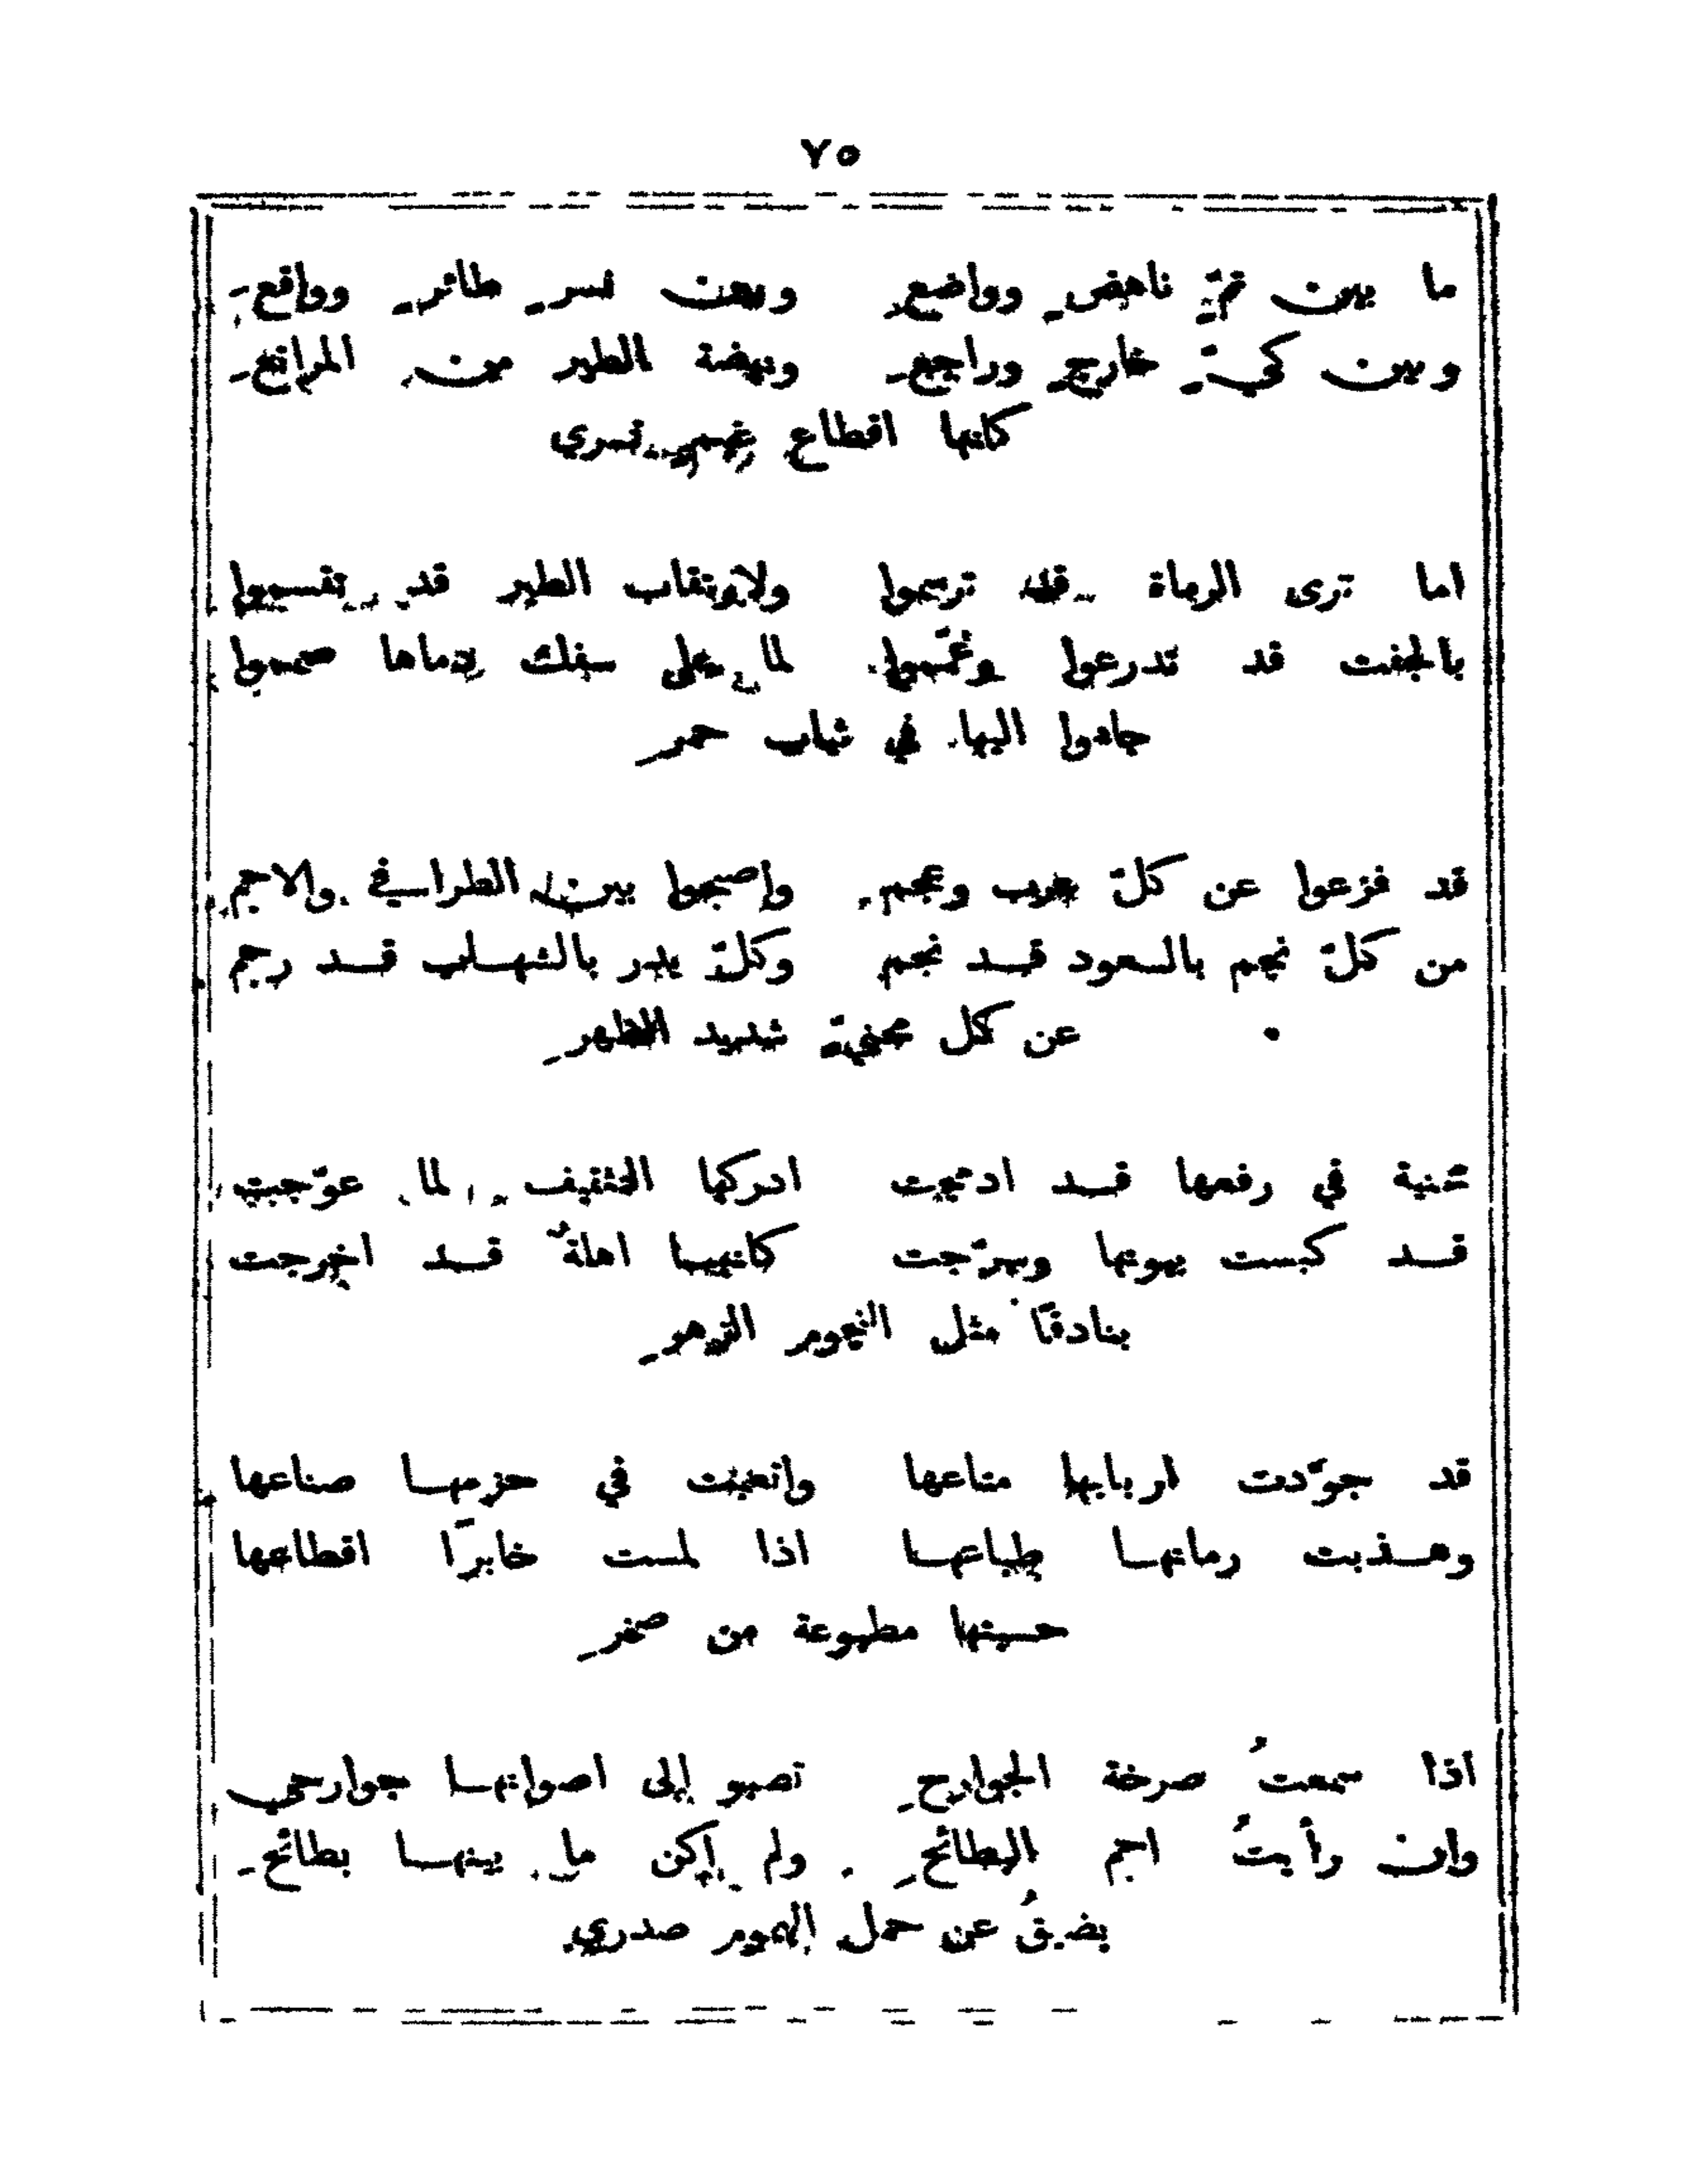 ٧٥
ما بين تمّ ناهض وواضع وبين نسر طائر وواقع
وبين كيّ خارج وراجع ونهضة الطير من المراتع
كانها اقطاع غيم تسري
اما ترى الرماة قد ترسموا ولارتقاب الطير قد تقسموا
بالجفت قد تدرعوا وعُمّموا لما على سفك دماها صمموا
جاءوا اليها في ثياب حمر
قد فزعوا عن كلّ عرب وعجم واصبحوا بين الطراف والاجم
من كلّ نجم بالسعود قد نجم وكلّ بدر بالشهاب قد رجم
عن كل محنيّة شديد الظهر
محنية في رفعها قد ادمجت ادركها التثقيف لما عوّجت
قد كبست بيوتها وسرّجت كانها اهلةٌ قد اخرجت
بنادقًا مثل النجوم الزهر
قد جوّدت اربابها متاعها واتعبت في حزمها صناعها
وهذبت رماتها طباعها اذا لمست خابرًا اقطاعها
حسبتها مطبوعة من صخر
اذا سمعتُ صرخة الجوارح تصبو إلى اصواتها جوارحي
وان رأيتُ اجم البطائح ولم اكن ما بينها بطائح
يضيقُ عن حمل الهموم صدري